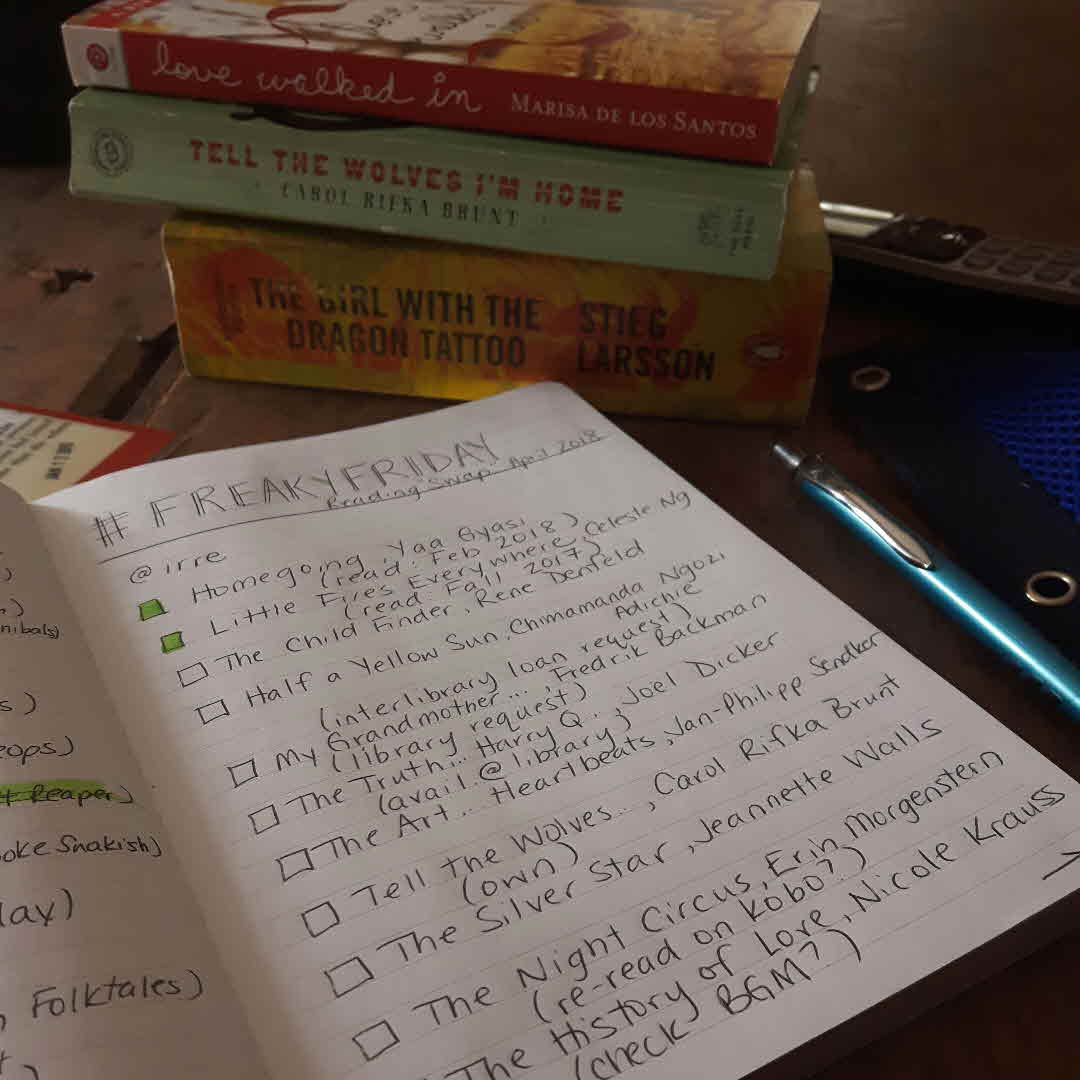 love walked in MARISA DE LOS SANTOS
TELL THE WOLVES I'M HOME
CAROL RIFKA BRUNT
THE GIRL WITH THE
DRAGON TATTOO
STIEG
LARSSON
# FREAKYFRIDAY
Reading Swap: April 2018
@irre
Homegoing, Yaa Gyasi
(read: Feb 2018)
Little Fires Everywhere, Celeste Ng
(read: Fall 2017)
The Child Finder, Rene Denfeld
Half a Yellow Sun, Chimamanda Ngozi
Adichie
(interlibrary loan request)
My Grandmother..., Fredrik Backman
(library request)
The Truth... Harry Q., Joel Dicker
(avail @ library)
The Art... Heartbeats, Jan-Philipp Sendker
Tell the Wolves..., Carol Rifka Brunt
(own)
The Silver Star, Jeannette Walls
The Night Circus, Erin Morgenstern
(re-read on Kobo?)
The History of Love, Nicole Krauss
(check BGM?)
nibals)
s)
eops)
Reaper)
oke Snakish)
lay)
Folktales)